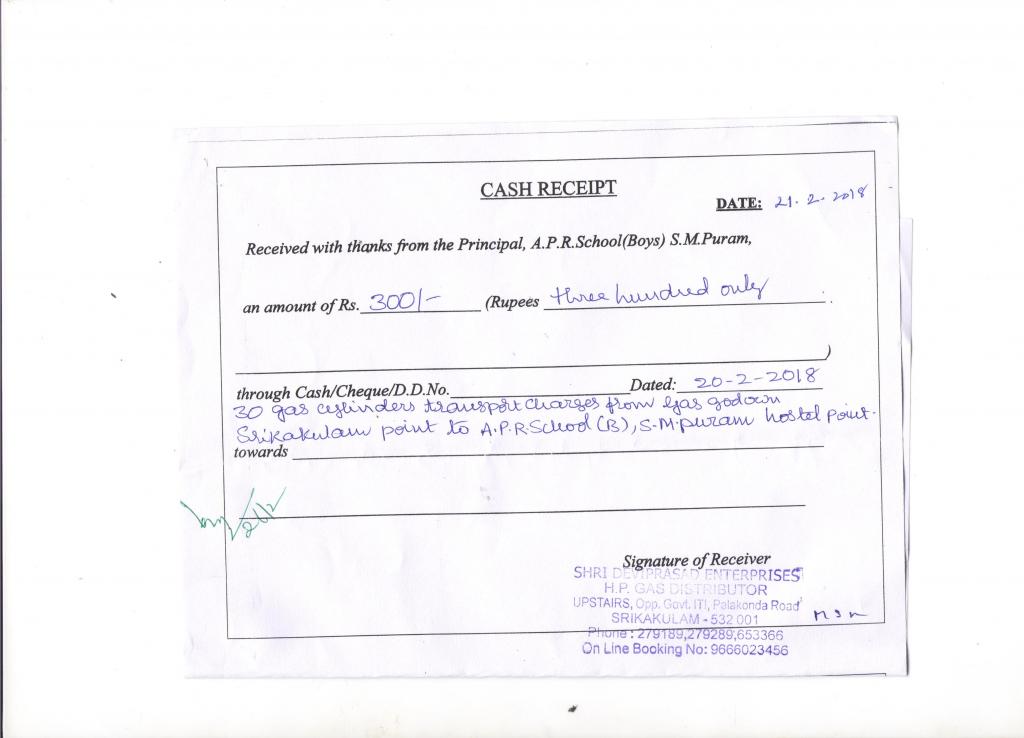 CASH RECEIPT
DATE: 21.2.2018
Received with thanks from the Principal, A.P.R.School(Boys) S.M.Puram,
an amount of Rs. 300/- (Rupees three hundred only .
)
through Cash/Cheque/D.D.No. Dated: 20-2-2018
30 gas cylinders transport charges from gas godown
Srikakulam point to A.P.R.School (B), S.M.puram hostel point.
towards
21/2
Signature of Receiver
SHRI DEVIPRASAD ENTERPRISES
H.P. GAS DISTRIBUTOR
UPSTAIRS, Opp. Govt. ITI, Palakonda Road
SRIKAKULAM - 532 001
Phone : 279189,279289,653366
On Line Booking No: 9666023456